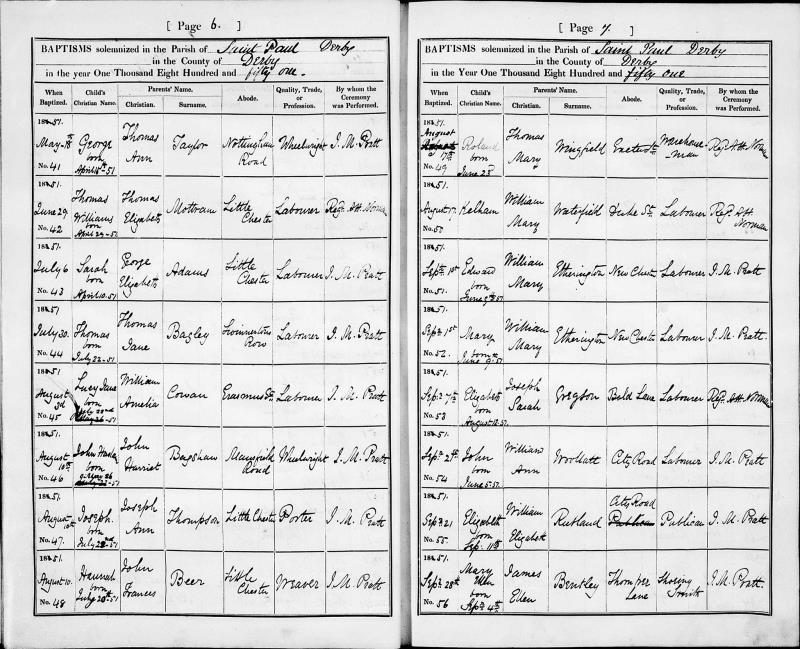 [ Page 6. ]
BAPTISMS solemnized in the Parish of Saint Paul Derby
in the County of Derby
in the year One Thousand Eight Hundred and fifty one.
When Baptized.
Child's Christian Name.
Parents' Name.
Christian.
Surname.
Abode.
Quality, Trade, or Profession.
By whom the Ceremony was Performed.
1851.
May 18th George born April 18th-51 Thomas Ann Taylor Nottingham Road Wheelwright J. M. Pratt
No. 41
1851.
June 29. Thomas Williams born April 29-51 Thomas Elizabeth Mottram Little Chester Labourer Regd. AH. Norman
No. 42
1851.
July 6 Sarah born April 10.51 George Elizabeth Adams Little Chester Labourer J. M. Pratt
No. 43
1851
July 30. Thomas born July 22-51 Thomas Jane Bagley Row Labourer J. M. Pratt
No. 44
1851
August 3d Lucy Jane born William Amelia Cowan Erasmus St. Labourer J. M. Pratt
No. 45
1851.
August 10th John born John Harriet Bagshaw Mansfield Road Wheelwright J. M. Pratt
No. 46
1851.
August 10th Joseph. born July 22-51 Joseph Ann Thompson Little Chester Porter J. M. Pratt
No. 47.
1851.
August 10. Hannah born July 20th 51 John Frances Beer Little Chester Weaver J. M. Pratt
No. 48
[ Page 7. ]
BAPTISMS solemnized in the Parish of Saint Paul Derby
in the County of Derby
in the Year One Thousand Eight Hundred and fifty one
When Baptized.
Child's Christian Name.
Parents' Name.
Christian.
Surname.
Abode.
Quality, Trade, or Profession.
By whom the Ceremony was Performed.
1851.
August 17th Roland born June 23d Thomas Mary Wingfield Exeter St. Warehouse-man Regd. AH. Norman
No. 49
1851.
August 17. Kelham William Mary Waterfield Duke St. Labourer Regd. AH Norman
No. 50
1851.
Septr. 1st Edward born June 9th 51. William Mary Etherington New Chester Labourer J. M. Pratt
No. 51.
1851.
Septr 1st Mary born June 9-51 William Mary Etherington New Chester Labourer J. M. Pratt.
No. 52.
1851.
Septr 7th Elizabeth born August 12.51. Joseph Sarah Gregson Bold Lane Labourer Regd. AH. Norman
No. 53
1851.
Septr 21st John born June 5.51. William Ann Woollatt City Road Labourer J. M. Pratt
No. 54
1851.
Septr 21 Elizabeth born Sepr. 11th William Elizabeth Rutland City Road Publican Publican J. M. Pratt
No. 55.
1851.
Septr 28th Mary Ellen born Sepr 4th James Ellen Bentley Thorntree Lane Shoeing Smith J. M. Pratt.
No. 56